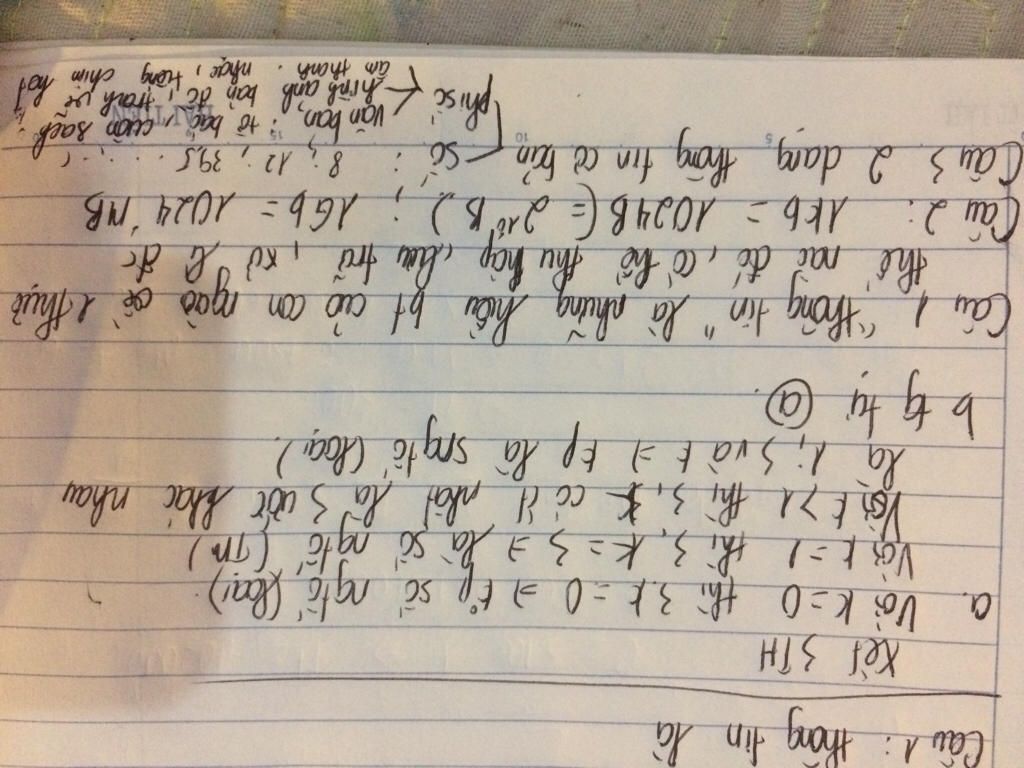 Câu 1: thông tin là
Xét 3 TH
a. Với k=0 thì 3.k = 0 => k°p số ngtố (loại)
Với k=1 thì 3.k = 3 => là số ngtố (TM)
Với k>1 thì 3.k có ít nhất là 3 ước khác nhau
là 1; 3 và k => kp là sngtố (loại)
b tg tự (a).
Câu 1 "thông tin" là những hiểu bt của con ngườ về 1 thực
thể nào đó, có thể thu thập, lưu trữ, xử lí đc
Câu 2: 1kb = 1024B (= 2¹⁰B); 1Gb = 1024 MB
Câu 3 2 dạng thông tin cơ bản
số : 8; 12; 39,5 ....
phi số
văn bản: tờ báo, cuốn sách
hình ảnh: bản đồ, tranh vẽ
âm thanh: nhạc, tiếng chim hót
HẢI TIẾN